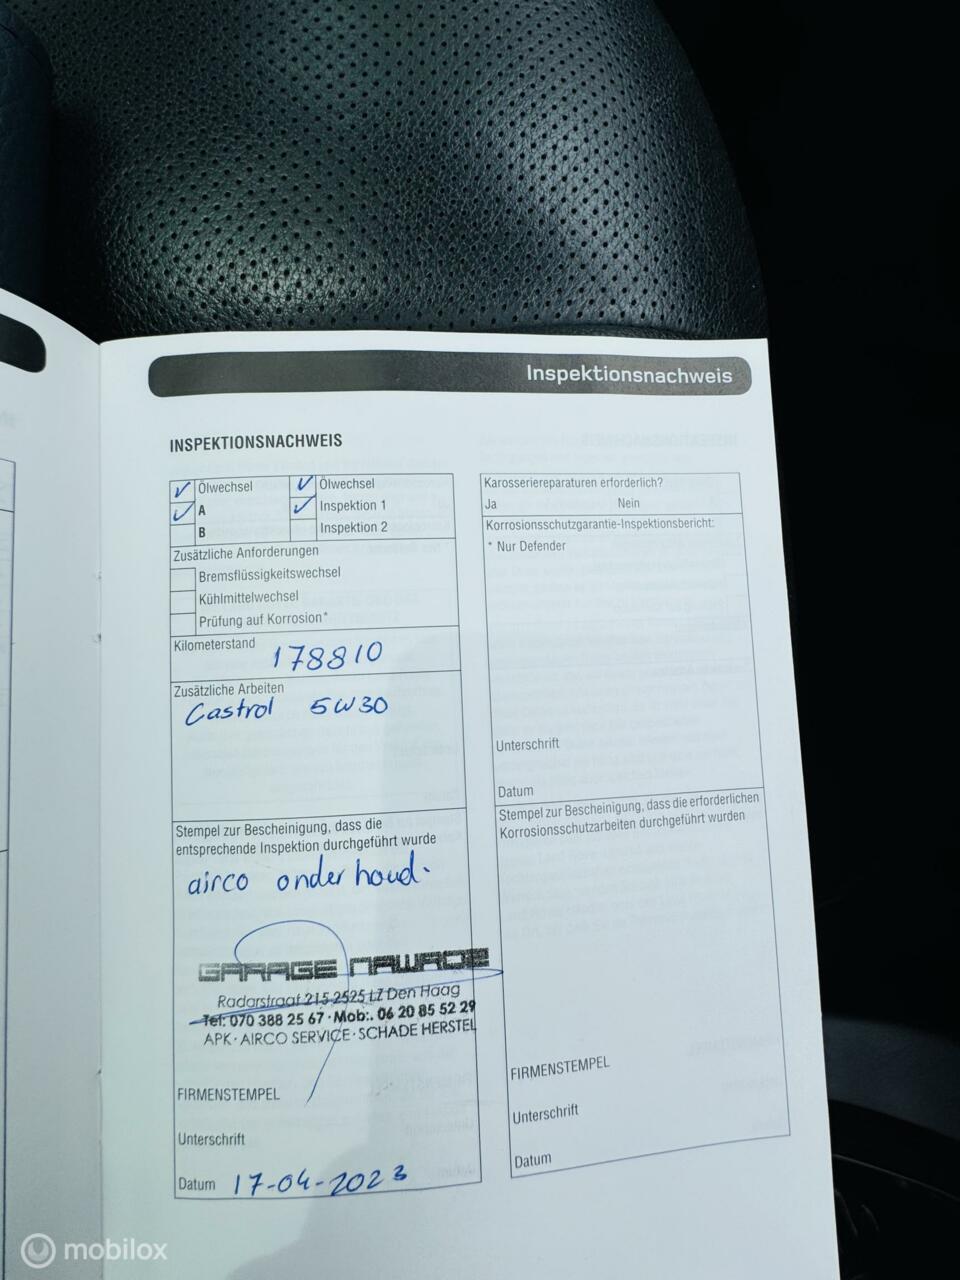 Inspektionsnachweis
INSPEKTIONSNACHWEIS
Ölwechsel
Ölwechsel
A
Inspektion 1
B
Inspektion 2
Zusätzliche Anforderungen
Bremsflüssigkeitswechsel
Kühlmittelwechsel
Prüfung auf Korrosion*
Kilometerstand
178810
Zusätzliche Arbeiten
Castrol 5W30
Stempel zur Bescheinigung, dass die
entsprechende Inspektion durchgeführt wurde
airco onderhoud.
GARAGE NAWROZ
Radarstraat 215 2525 LZ Den Haag
Tel: 070 388 25 67 · Mob:. 06 20 85 52 29
APK · AIRCO SERVICE · SCHADE HERSTEL
FIRMENSTEMPEL
Unterschrift
Datum 17-04-2023
Karosseriereparaturen erforderlich?
Ja Nein
Korrosionsschutzgarantie-Inspektionsbericht:
* Nur Defender
Unterschrift
Datum
Stempel zur Bescheinigung, dass die erforderlichen
Korrosionsschutzarbeiten durchgeführt wurden
FIRMENSTEMPEL
Unterschrift
Datum
mobilox